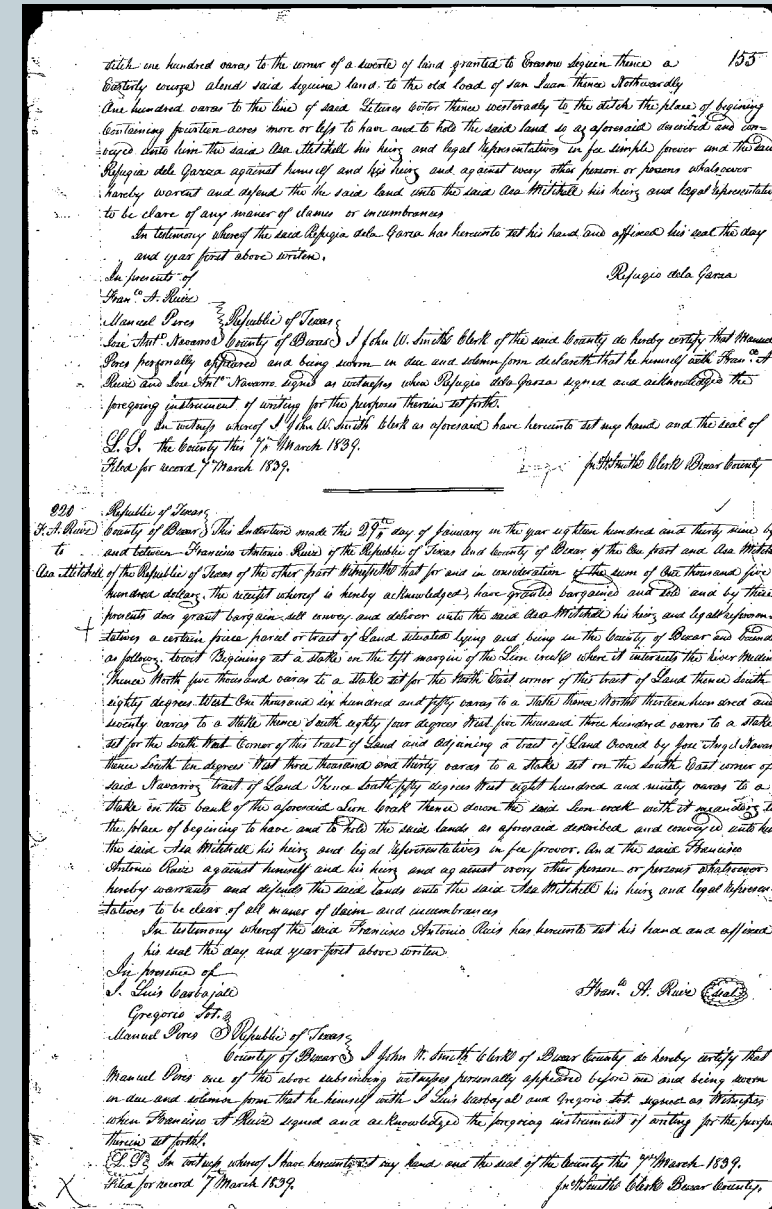 155
ditch one hundred varas to the corner of a suerte of land granted to Erasmo Seguin thence a
Easterly course alond said seguins land to the old load of san Juan thence Nothwardly
One hundred varas to the line of said thence westeradly to the ditch the place of begining
Containing fourteen acres more or less to have and to hold the said land so as aforesaid described and con=
veyed unto him the said Asa Mitchell his heirs and legal Representatives in fee simple forever and the said
Refugia dela Garza against himself and his heirs and against every other person or persons whatsoever
hereby warent and defend the he said land unto the said Asa Mitchell his heirs and legal representative
to be clare of any maner of clames or incumbrances
In testimony whereof the said Refugia dela Garza has hereunto set his hand and affixed his seal the day
and year first above writen.
In presents of
Refugio dela Garza
Fran.co A. Ruiz
Manuel Peres Republic of Texas
Jose Ant.o Navarro County of Bexar I John W. Smith Clerk of the said County do hereby certify that Manuel
Peres personally appeared and being sworn in due and solemn form declareth that he himself with Fran.co A
Ruiz and Jose Ant.o Navarro signed as witnesses when Refugio dela Garza signed and acknowledged the
foregoing instrument of writing for the purposes therein set forth.
In witness whereof I John W. Smith Clerk as aforesaid have hereunto set my hand and the seal of
L. S. the County this 7th March 1839.
Filed for record 7th March 1839.
Jn. W Smith Clerk Bexar County
220
F. A. Ruiz
to
Asa Mitchell
Republic of Texas
County of Bexar This Indenture made the 29th day of January in the year eighteen hundred and thirty nine by
and between Francisco Antonio Ruiz of the Republic of Texas and County of Bexar of the One part and Asa Mitchell
of the Republic of Texas of the other part Witnesseth that for and in consideration of the sum of One thousand five
hundred dollars. the receipt whereof is hereby acknowledged, have granted bargained and sold and by these
presents does grant bargain sell convey and deliver unto the said Asa Mitchell his heirs and legall represen=
tatives a certain peice parcel or tract of Land situated lying and being in the County of Bexar and bounded
as follows. towit Begining at a stake on the left margin of the Leon creek where it intersects the river Medina
Thence North five thousand varas to a stake set for the North East corner of this tract of Land thence South
eighty degrees West One thousand six hundred and fifty varas to a stake thence North thirteen hundred and
seventy varas to a stake thence South eighty four degrees West five thousand three hundred varas to a stake
set for the South West Corner of this tract of Land and adjoining a tract of Land Owned by Jose Angel Navarro
thence South ten degrees West three thousand and thirty varas to a stake set on the South East corner of
said Navarros tract of Land Thence South fifty degrees West eight hundred and ninety varas to a
stake on the bank of the aforesaid Leon Creak thence down the said Leon creek with it meanders to
the place of begining to have and to hold the said lands as aforesaid described and conveyed unto
the said Asa Mitchell his heirs and legal Representatives in fee forever. And the said Francisco
Antonio Ruiz against himself and his heirs and against every other person or persons whatsoever
hereby warrants and defends the said lands unto the said Asa Mitchell his heirs and legal Represen=
tatives to be clear of all maner of claim and incumbrances
In testimony whereof the said Francisco Antonio Ruis has hereunto set his hand and affixed
his seal the day and year first above writen
In presence of
J. Luis Carbajall
Fran.co A. Ruiz seal
Gregorio Sot.
Manuel Peres Republic of Texas
County of Bexar I John W. Smith Clerk of Bexar County do hereby certify that
Manuel Peres one of the above subscribing witnesses personally appeared before me and being sworn
in due and solemn form that he himself with J Luis Carbajal and Gregorio Sot. signed as Witnesses
when Francisco A Ruiz signed and acknowledged the foregoing instrument of writing for the purposes
therein set forth.
L. S. In witness whereof I have hereunto set my hand and the seal of the County this 7th March 1839.
Filed for record 7 March 1839.
Jn. W Smith Clerk Bexar County.